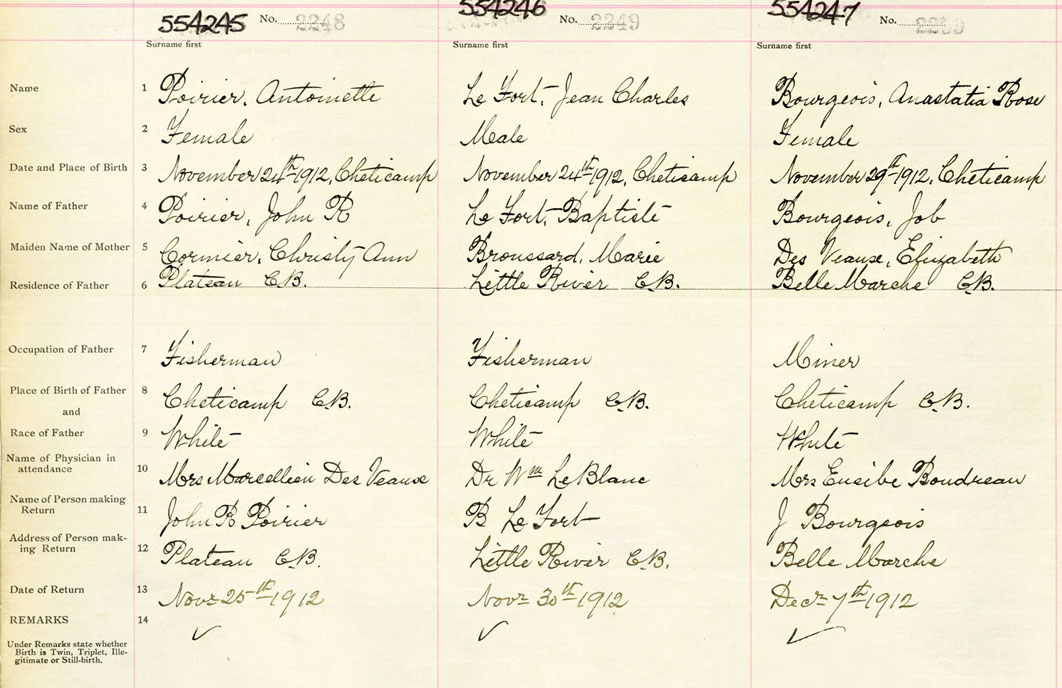 554245 No. 2248 554246 No. 2249 554247 No. 2250
Surname first Surname first Surname first
Name 1 Poirier, Antoinette Le Fort, Jean Charles Bourgeois, Anastatia Rose
Sex 2 Female Meale Female
Date and Place of Birth 3 November 24th 1912, Cheticamp November 24th 1912, Cheticamp November 29th 1912, Cheticamp
Name of Father 4 Poirier, John R Le Fort, Baptiste Bourgeois, Job
Maiden Name of Mother 5 Cormier, Christy Ann Broussard, Marie Des Veause, Elizabeth
Residence of Father 6 Plateau C.B. Little River C.B. Belle Marche C.B.
Occupation of Father 7 Fisherman Fisherman Miner
Place of Birth of Father 8 Cheticamp C.B. Cheticamp C.B. Cheticamp C.B.
and
Race of Father 9 White White White
Name of Physician in
attendance 10 Mrs Marcellien Des Veause Dr Wm LeBlanc Mrs Eusibe Boudreau
Name of Person making
Return 11 John R Poirier B Le Fort J Bourgeois
Address of Person mak-
ing Return 12 Plateau C.B. Little River C.B. Belle Marche
Date of Return 13 Novr 25th 1912 Novr 30th 1912 Decr 7th 1912
REMARKS 14 ✓ ✓ ✓
Under Remarks state whether
Birth is Twin, Triplet, Ille-
gitimate or Still-birth.